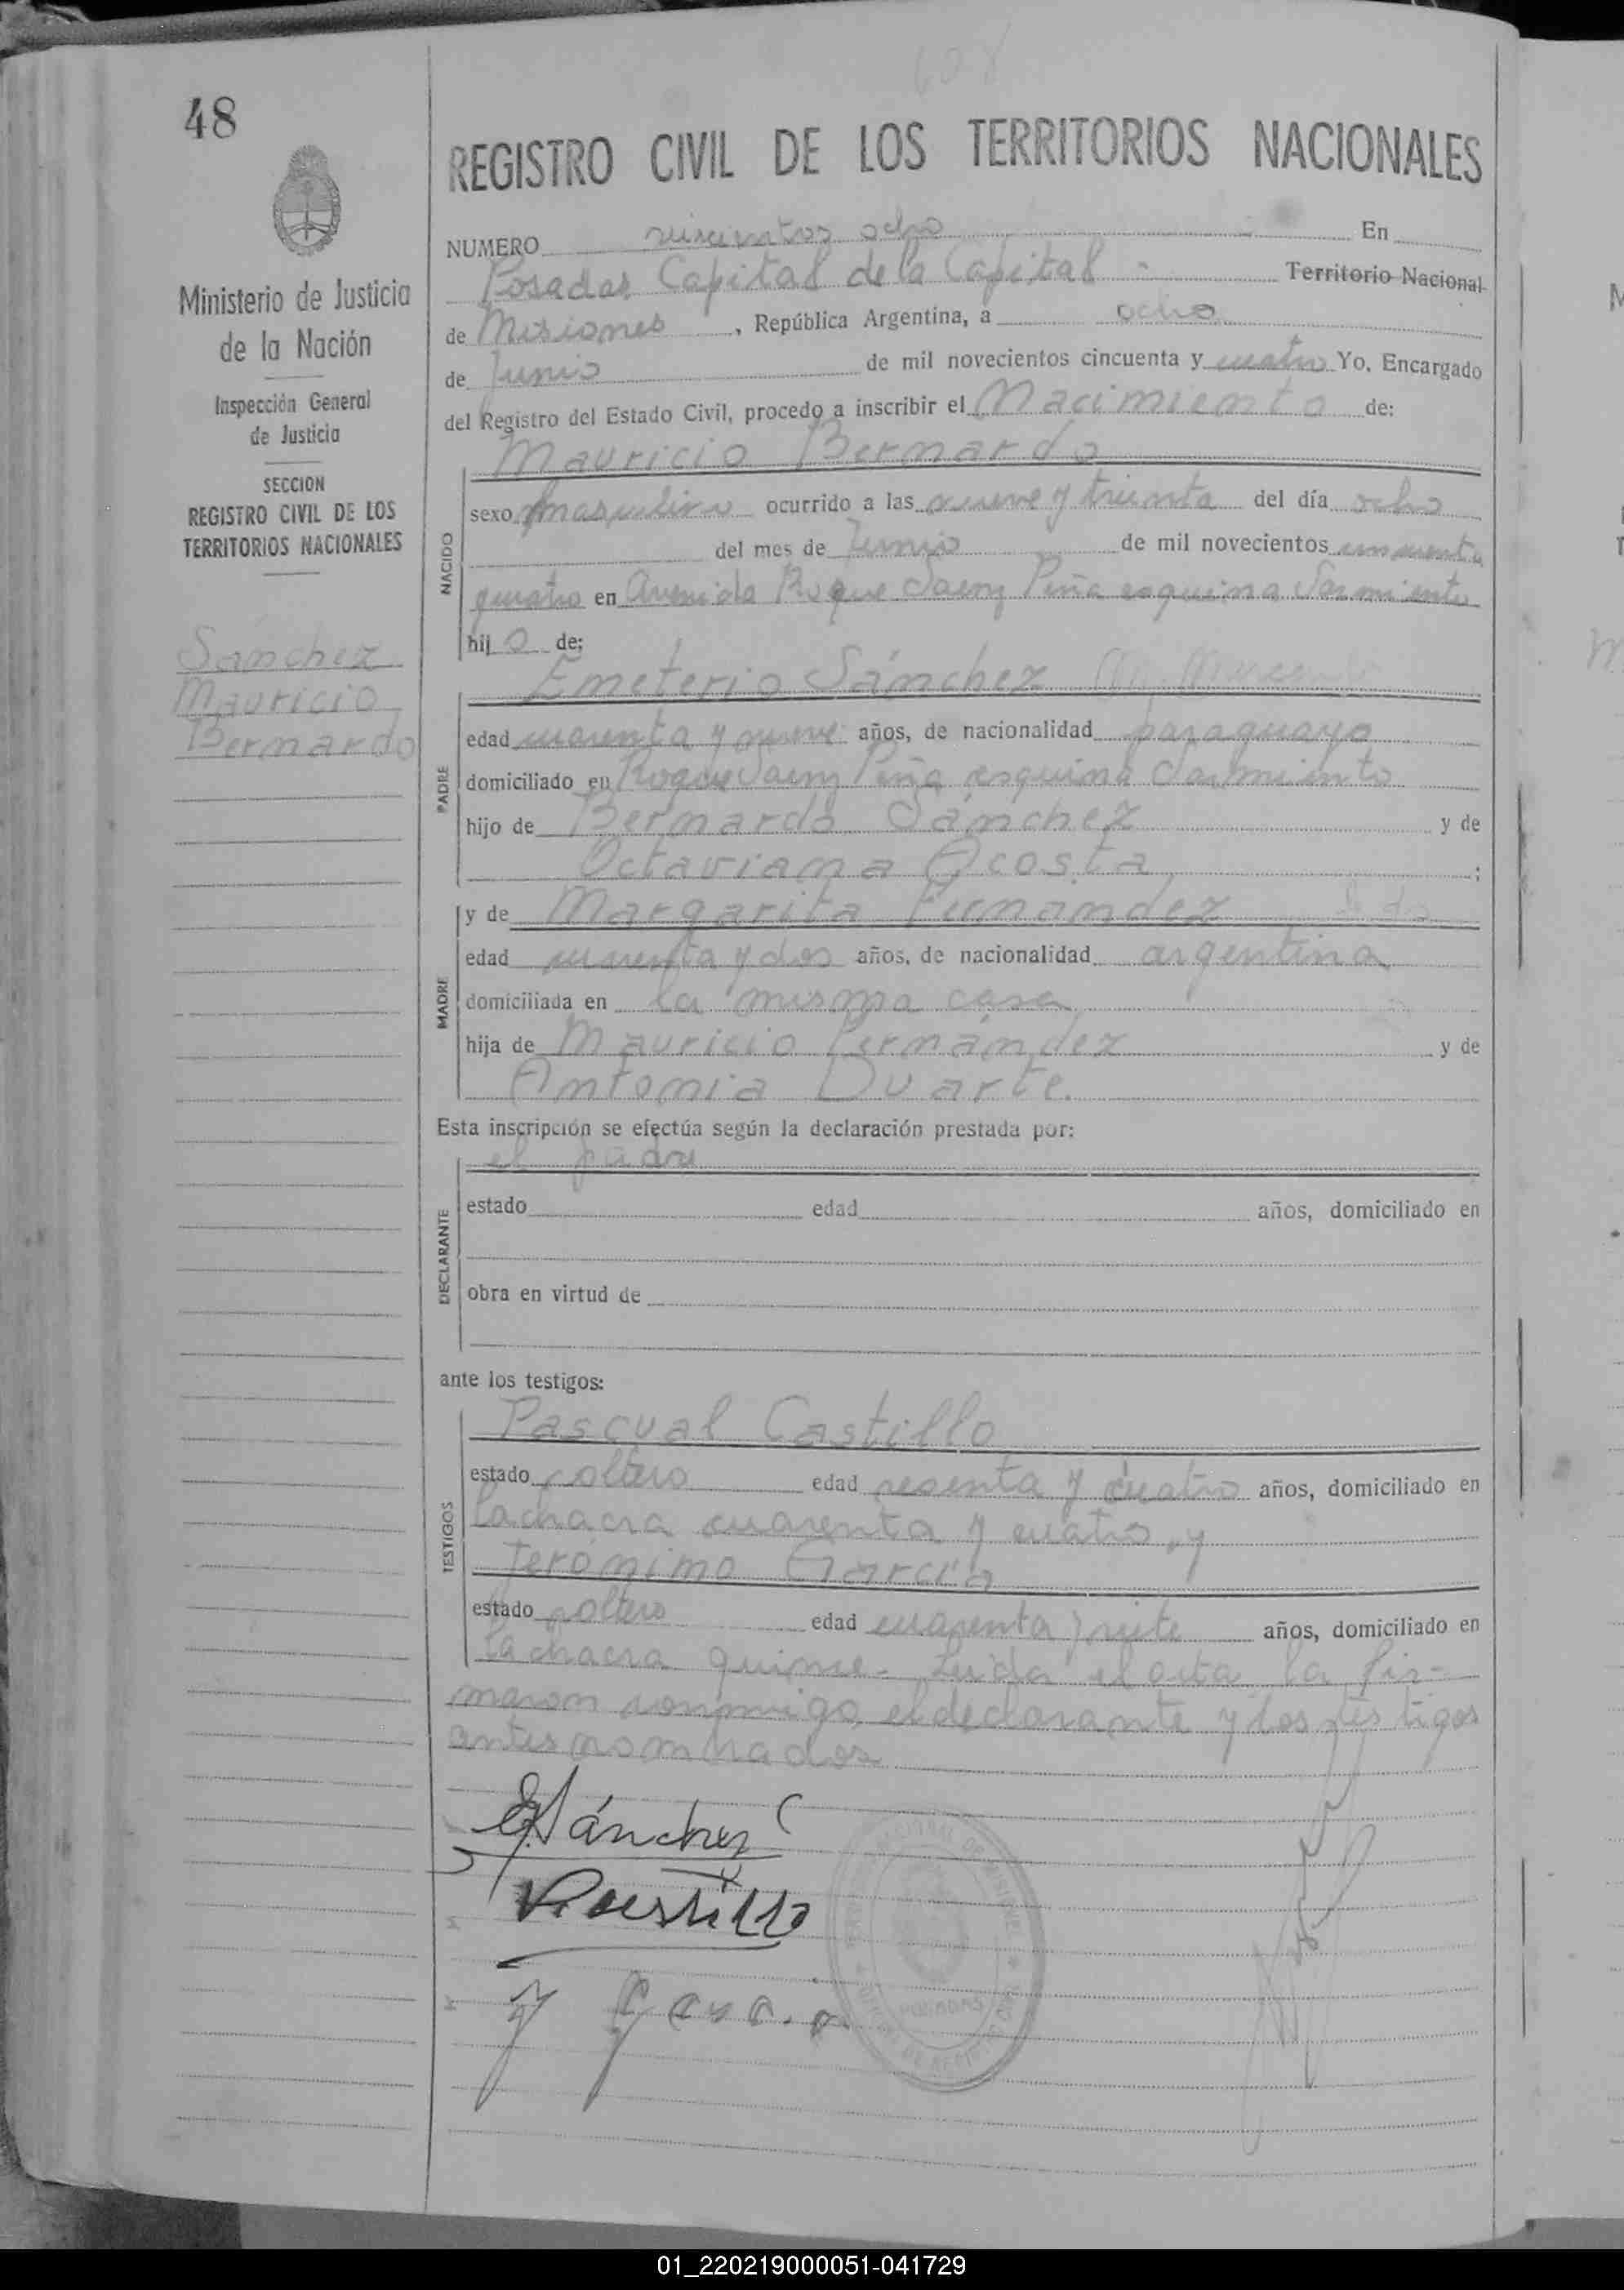 608
48
REGISTRO CIVIL DE LOS TERRITORIOS NACIONALES
Ministerio de Justicia
de la Nación
Inspección General
de Justicia
SECCION
REGISTRO CIVIL DE LOS
TERRITORIOS NACIONALES
Sánchez
Mauricio
Bernardo
NUMERO seiscientos ocho En
Posadas Capital de la Capital - Territorio Nacional
de Misiones, República Argentina, a ocho
de Junio de mil novecientos cincuenta y cuatro Yo, Encargado
del Registro del Estado Civil, procedo a inscribir el Nacimiento de:
Mauricio Bernardo
NACIDO
sexo masculino ocurrido a las nueve y treinta del día ocho
del mes de Junio de mil novecientos cincuenta
cuatro en Avenida Roque Saenz Peña esquina Sarmiento
hijo de:
Emeterio Sánchez
PADRE
edad cuarenta y nueve años, de nacionalidad paraguayo
domiciliado en Roque Saenz Peña esquina Sarmiento
hijo de Bernardo Sánchez y de
Octaviana Acosta;
MADRE
y de Margarita Fernández
edad cuarenta y dos años, de nacionalidad argentina
domiciliada en la misma casa
hija de Mauricio Fernández y de
Antonia Duarte.
Esta inscripción se efectúa según la declaración prestada por:
el padre
DECLARANTE
estado edad años, domiciliado en
obra en virtud de
ante los testigos:
Pascual Castillo
TESTIGOS
estado soltero edad sesenta y cuatro años, domiciliado en
la chacra cuarenta y cuatro, y
Jerónimo García
estado soltero edad cuarenta y siete años, domiciliado en
la chacra quince.- Leída el acta la fir-
maron conmigo, el declarante y los testigos
antes nombrados
E Sánchez
P. Castillo
POSADAS
01_220219000051-041729